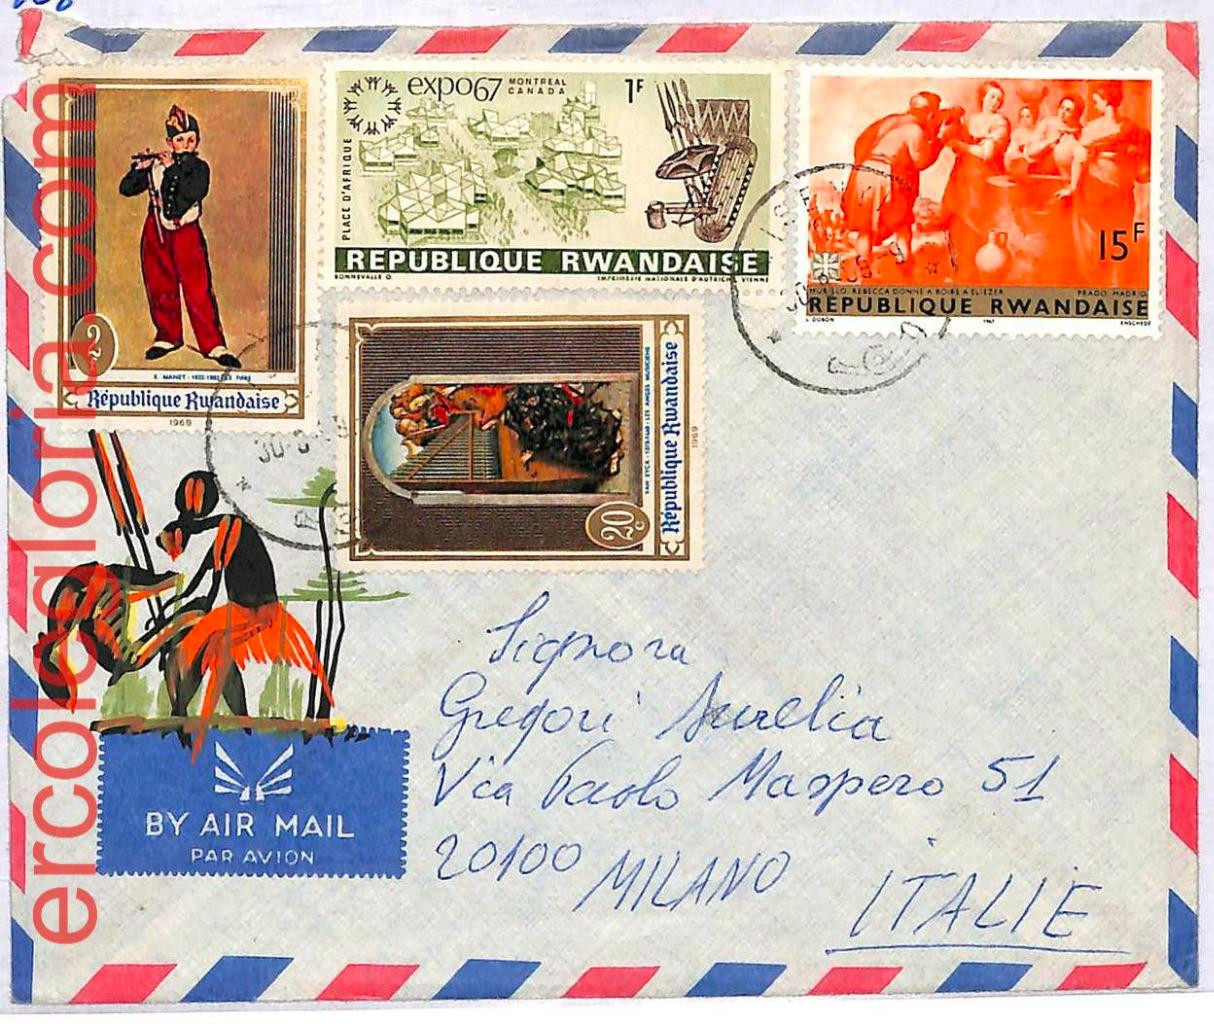 ercolegloria.com
2
E. MANET - 1832-1883 LE FIFRE
République Rwandaise
1969
expo67 MONTREAL CANADA
1F
PLACE D'AFRIQUE
REPUBLIQUE RWANDAISE
BONNEVALLE O. IMPRIMERIE NATIONALE D'AUTRICHE, VIENNE
15F
MURILLO, REBECCA DONNE A BOIRE A ELIEZER PRADO MADRID
REPUBLIQUE RWANDAISE
L. DOBON 1967 ENSCHEDÉ
VAN EYCK - LES ANGES MUSICIENS
République Rwandaise
1969
20c
Signora
Gregori Aurelia
Via Paolo Maspero 51
20100 MILANO
ITALIE
BY AIR MAIL
PAR AVION